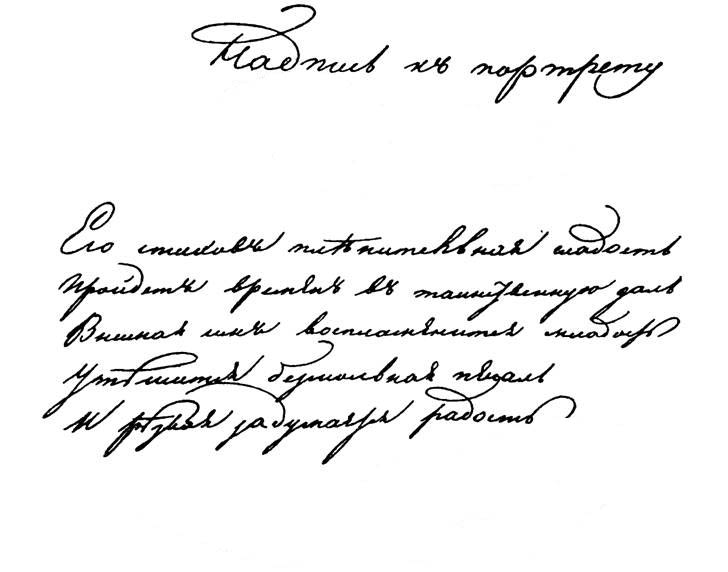 Надпись къ портрету
Его стиховъ плѣнительная сладость
Пройдетъ временъ въ таинственную даль
Внимая имъ воспламенится младость
Утѣшится безмолвная печаль
И рѣзвая задумается радость